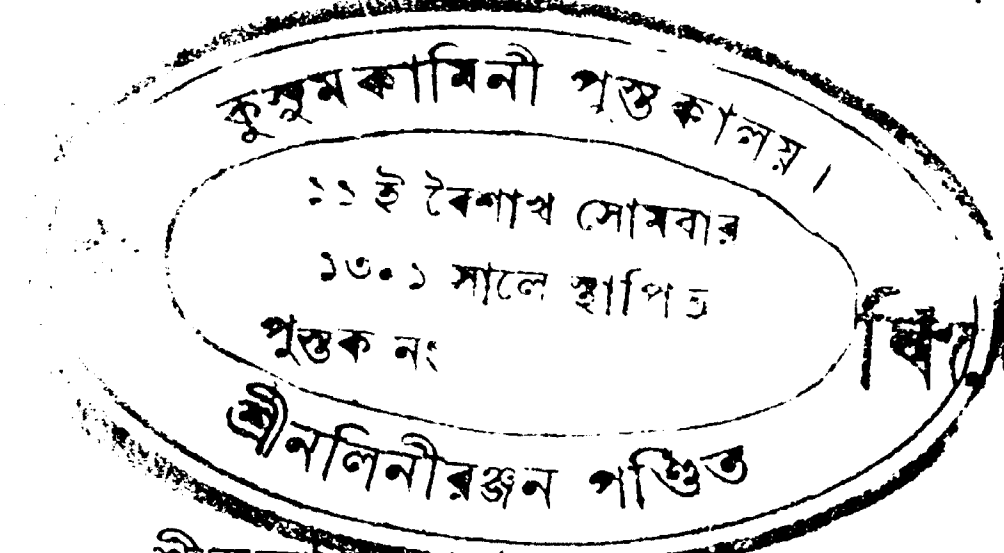 কুসুমকামিনী পুস্তকালয়।
১১ ই বৈশাখ সোমবার
১৩০১ সালে স্থাপিত
পুস্তক নং
শ্রীনলিনীরঞ্জন পণ্ডিত